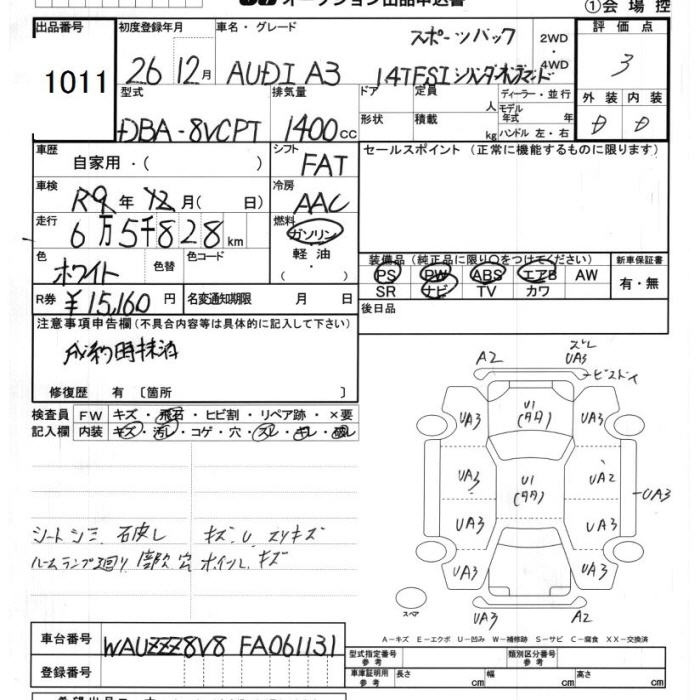 オークション出品申込書
①会場控
出品番号
1011
初度登録年月
26 12月
車名・グレード
スポーツバック
AUDI A3 1.4TFSI シリンダーオンデマンド
2WD・4WD
評価点
3
型式
DBA-8VCPT
排気量
1400cc
ドア
形状
定員
人
積載
kg
ディーラー・並行
モデル年式 年
ハンドル 左・右
外装 内装
D D
車歴
自家用・( )
シフト
FAT
セールスポイント (正常に機能するものに限ります)
車検
R9年12月( 日)
冷房
AAC
走行
6万5千828km
燃料
ガソリン
軽油
( ・ )
色
ホワイト
色替
色コード
装備品(純正品に限り○をつけてください)
PS PW ABS エアB AW
SR ナビ TV カワ
新車保証書
有・無
R券 ¥15,160円
名変通知期限 月 日
後日品
注意事項申告欄(不具合内容等は具体的に記入して下さい)
成約時抹消
修復歴 有 〔箇所 〕
検査員記入欄
FW キズ・飛石・ヒビ割・リペア跡・×要
内装 キズ・汚れ・コゲ・穴・スレ・キレ・破れ
シートシミ 石皮し キズ U スリキズ
ルームランプ廻り 内 穴 ホイールキズ
A2
スレ
UA3
ビスドイ
UA3
U1
(タタ)
UA3
UA3
U1
(タタ)
UA2
UA3
UA3
UA3
UA3
UA3
スペア
UA3
A2
A-キズ E-エクボ U-凹み W-補修跡 S-サビ C-腐食 XX-交換済
車台番号
WAUZZZ8V8FA061131
登録番号
型式指定番号
参考
類別区分番号
参考
車庫証明用
参考
長さ cm
幅 cm
高さ cm